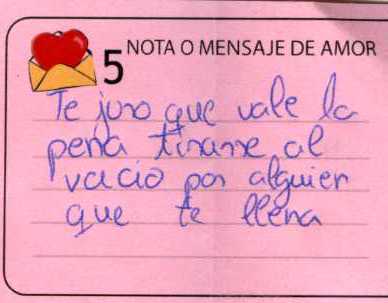 5 NOTA O MENSAJE DE AMOR
Te juro que vale la
pena tirarse al
vacio por alguien
que te llena